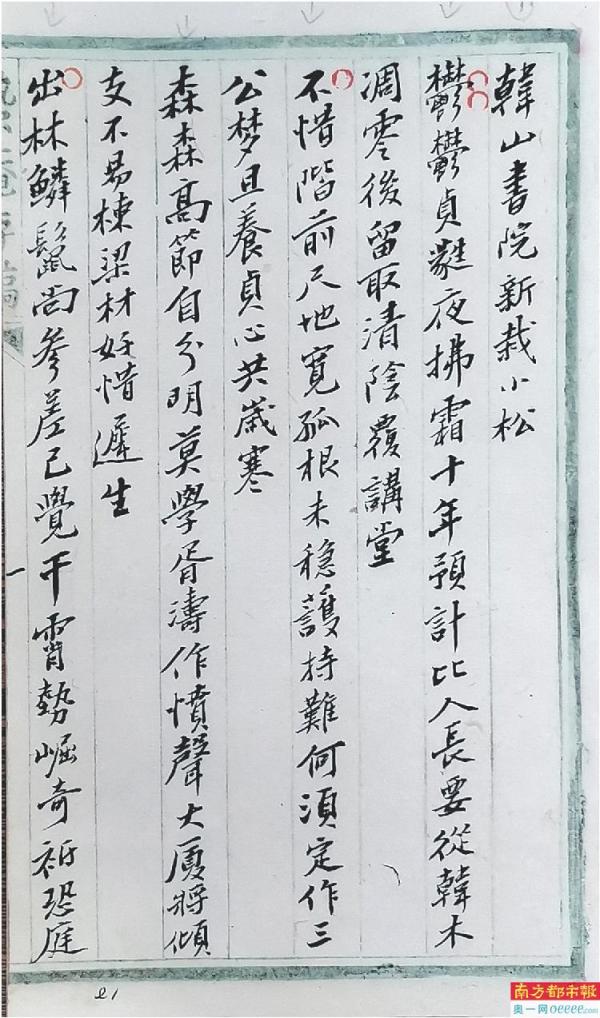 韓山書院新栽小松
鬱鬱貞蕤夜拂霜十年預計比人長要從韓木
凋零後留取清陰覆講堂
不惜階前尺地寬孤根未穩護持難何須定作三
公夢且養貞心共歲寒
森森高節自分明莫學胥濤作憤聲大厦將傾
支不易棟梁材好惜遲生
出林鱗鬣尚參差已覺干霄勢崛奇祇恐庭
一
21
南方都市報
奥一网oeeee.com